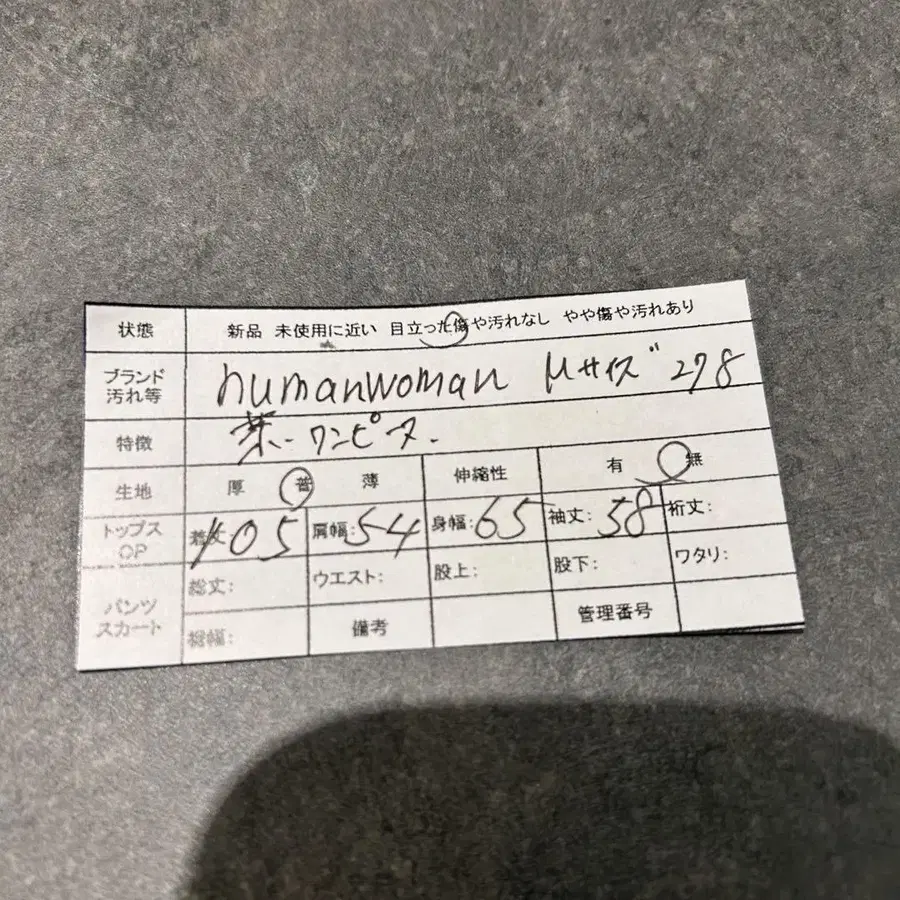 状態 新品 未使用に近い 目立った傷や汚れなし やや傷や汚れあり
ブランド
汚れ等 humanwoman Mサイズ 278
特徴 ワンピース
生地 厚 普 薄 伸縮性 有 無
トップス
OP 着丈: 105 肩幅: 54 身幅: 65 袖丈: 58 裄丈:
パンツ
スカート 総丈: ウエスト: 股上: 股下: ワタリ:
裾幅: 備考 管理番号